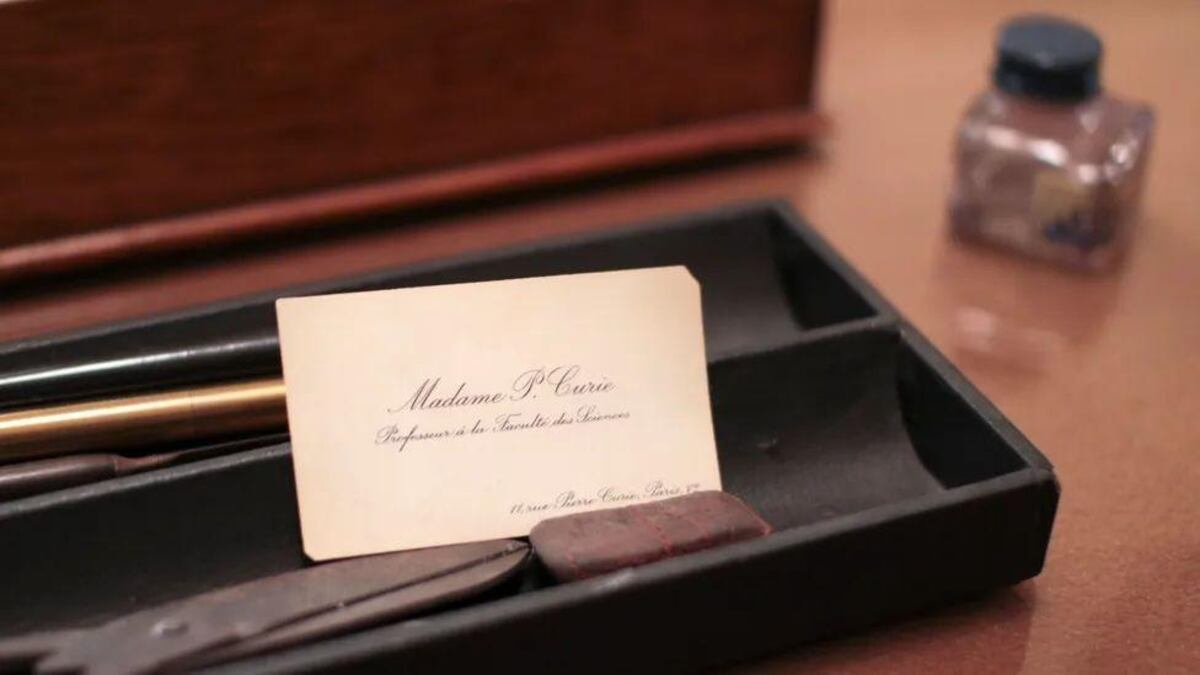 Madame P. Curie
Professeur à la Faculté des Sciences
11, rue Pierre Curie, Paris, Vᵉ